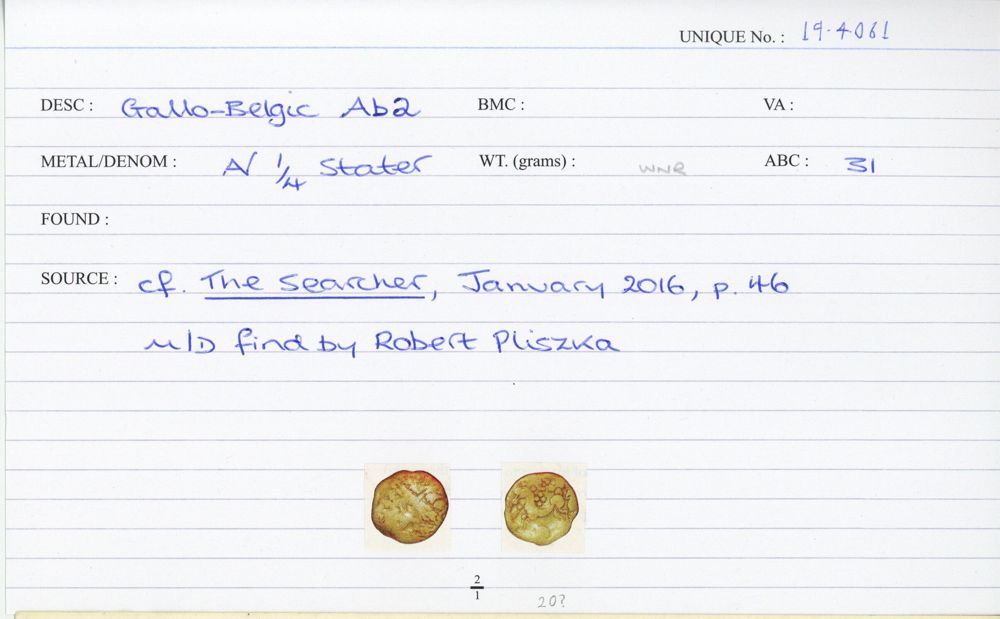 UNIQUE No. : 19.4061
DESC : Gallo-Belgic Ab2 BMC : VA :
METAL/DENOM : AV 1/4 Stater WT. (grams) : WNR ABC : 31
FOUND :
SOURCE : cf. The Searcher, January 2016, p. 46
M/D find by Robert Pliszka
2/1
20?